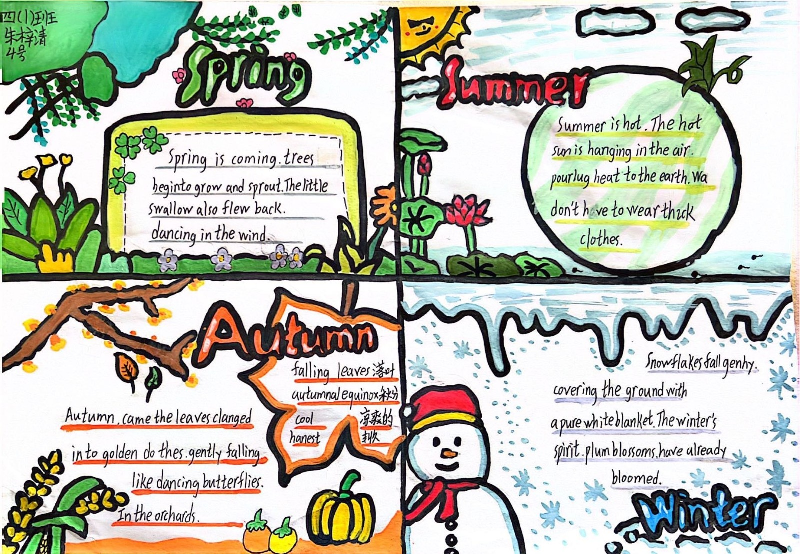 四(1)班
朱梓清
4号
Spring
Spring is coming. trees
beginto grow and sprout. The little
swallow also flew back.
dancing in the wind.
Summer
Summer is hot. The hot
sun is hanging in the air
pourlug heat to the earth. Wa
don't have to wear thick
clothes.
Autumn
falling leaves 落叶
autumnal equinox 秋分
cool 凉爽的
hanest 丰收
Autumn. came the leaves clanged
in to golden do thes. gently falling
like dancing butterflies.
In the orchards.
Snowflakes fall genhy.
covering the ground with
a pure white blanket. The winter's
spirit. plun blossoms. have already
bloomed.
Winter